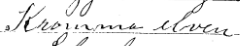 Kromma elven